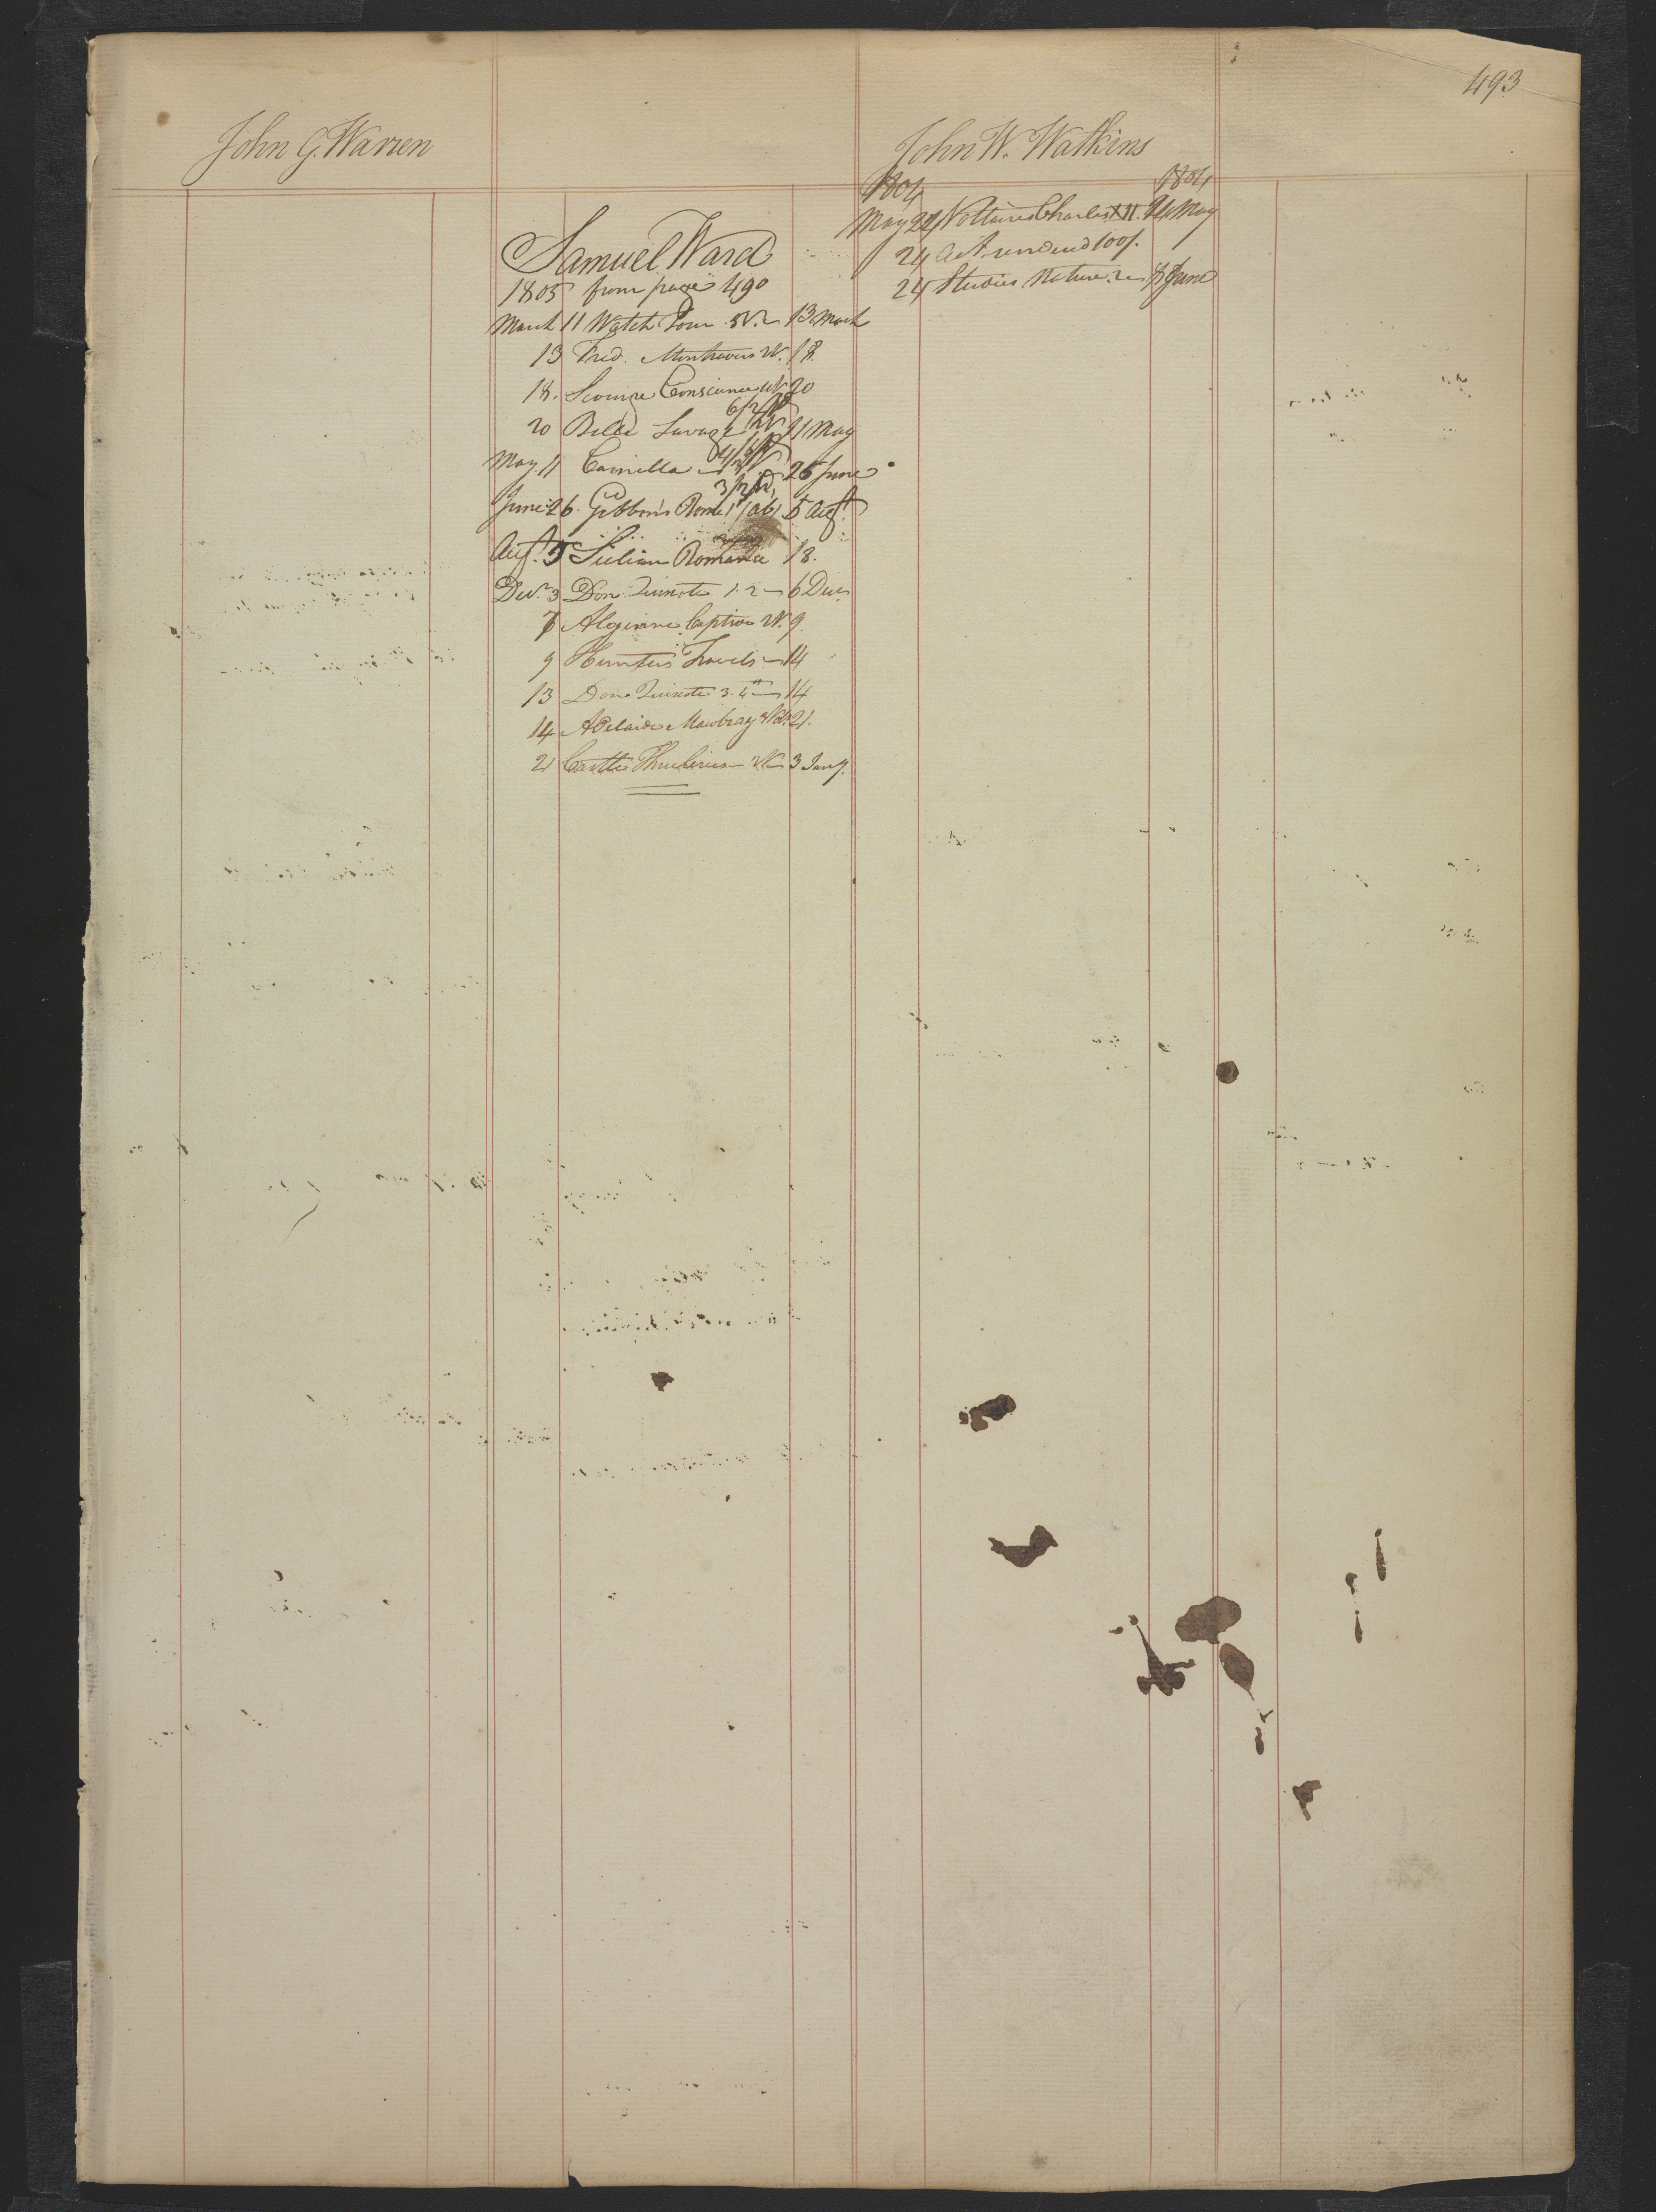 493
John G. Warren
Samuel Ward
1805 from page 490
March 11 Watch Tour 3V. 2 13 March
13 Fred. Montravers 2V. 18.
18. Scourge Conscience 4V. 20
6/2d
20 Belle Savage 2V. 11 May
4/2d
May 11 Camilla 3V 26 June
3/2d
June 26. Gibbon's Rome 1 5 Augt.
Augt. 5 Sicilian Romance 18.
Decr. 3 Don Quixote 1. 2 6 Decr
7 Algerine Captive 2V. 9.
9 Hunters Travels 14
13 Don Quixote 3. 4 14
14 Adelaide Mowbray 21.
21 Castle Thuilerica 2V 3 Jany.
John W. Watkins
1804 1804
May 22 Voltaires Charles XII. 24 May
24 Act 100/.
24 Studies Nature. 2 June